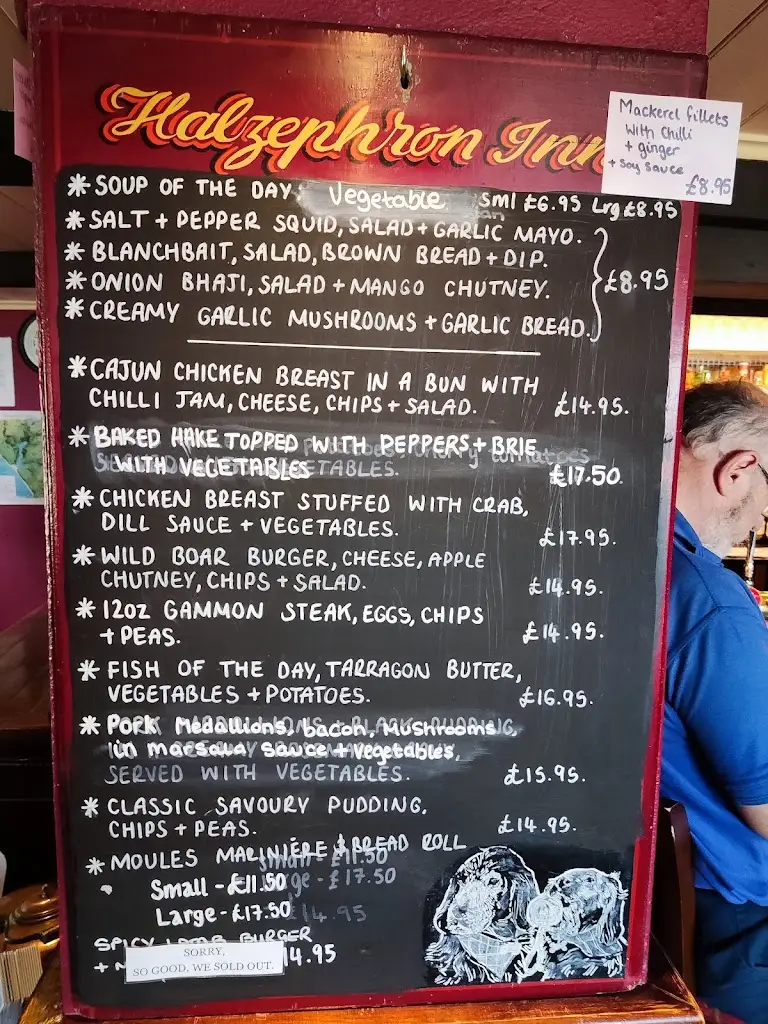 Halzephron Inn
Mackerel fillets
With Chilli
+ ginger
+ Soy Sauce
£8.95
* SOUP OF THE DAY Vegetable Sml £6.95 Lrg £8.95
* SALT + PEPPER SQUID, SALAD + GARLIC MAYO.
* BLANCHBAIT, SALAD, BROWN BREAD + DIP.
* ONION BHAJI, SALAD + MANGO CHUTNEY. £8.95
* CREAMY GARLIC MUSHROOMS + GARLIC BREAD.
* CAJUN CHICKEN BREAST IN A BUN WITH
CHILLI JAM, CHEESE, CHIPS + SALAD. £14.95.
* BAKED HAKE TOPPED WITH PEPPERS + BRIE
WITH VEGETABLES £17.50.
* CHICKEN BREAST STUFFED WITH CRAB,
DILL SAUCE + VEGETABLES. £17.95.
* WILD BOAR BURGER, CHEESE, APPLE
CHUTNEY, CHIPS + SALAD. £14.95.
* 12oz GAMMON STEAK, EGGS, CHIPS
+ PEAS. £14.95.
* FISH OF THE DAY, TARRAGON BUTTER,
VEGETABLES + POTATOES. £16.95.
* PORK Medallions, bacon, Mushrooms
in marsala sauce + vegetables,
SERVED WITH VEGETABLES. £15.95.
* CLASSIC SAVOURY PUDDING,
CHIPS + PEAS. £14.95.
* MOULES MARINIÈRE & BREAD ROLL
Small - £11.50
Large - £17.50
SPICY LAMB BURGER
14.95
SORRY,
SO GOOD, WE SOLD OUT.